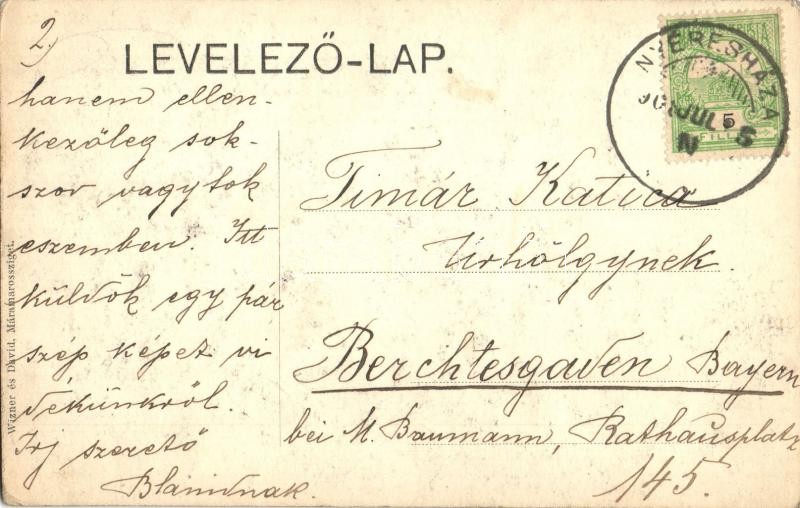 2.)
LEVELEZŐ-LAP.
hanem ellen-
kezőleg sok-
szor vagytok
eszemben. Itt
küldök egy pár
szép képet vi
dékünkről.
Irj szerető
Blankádnak.
Timár Katica
Urhölgynek.
Berchtesgaden Bayern
bei M. Baumann, Rathausplatz
145.
NYÉRESHÁZA
JUL
N
5
Wizner és Dávid, Máramarossziget.